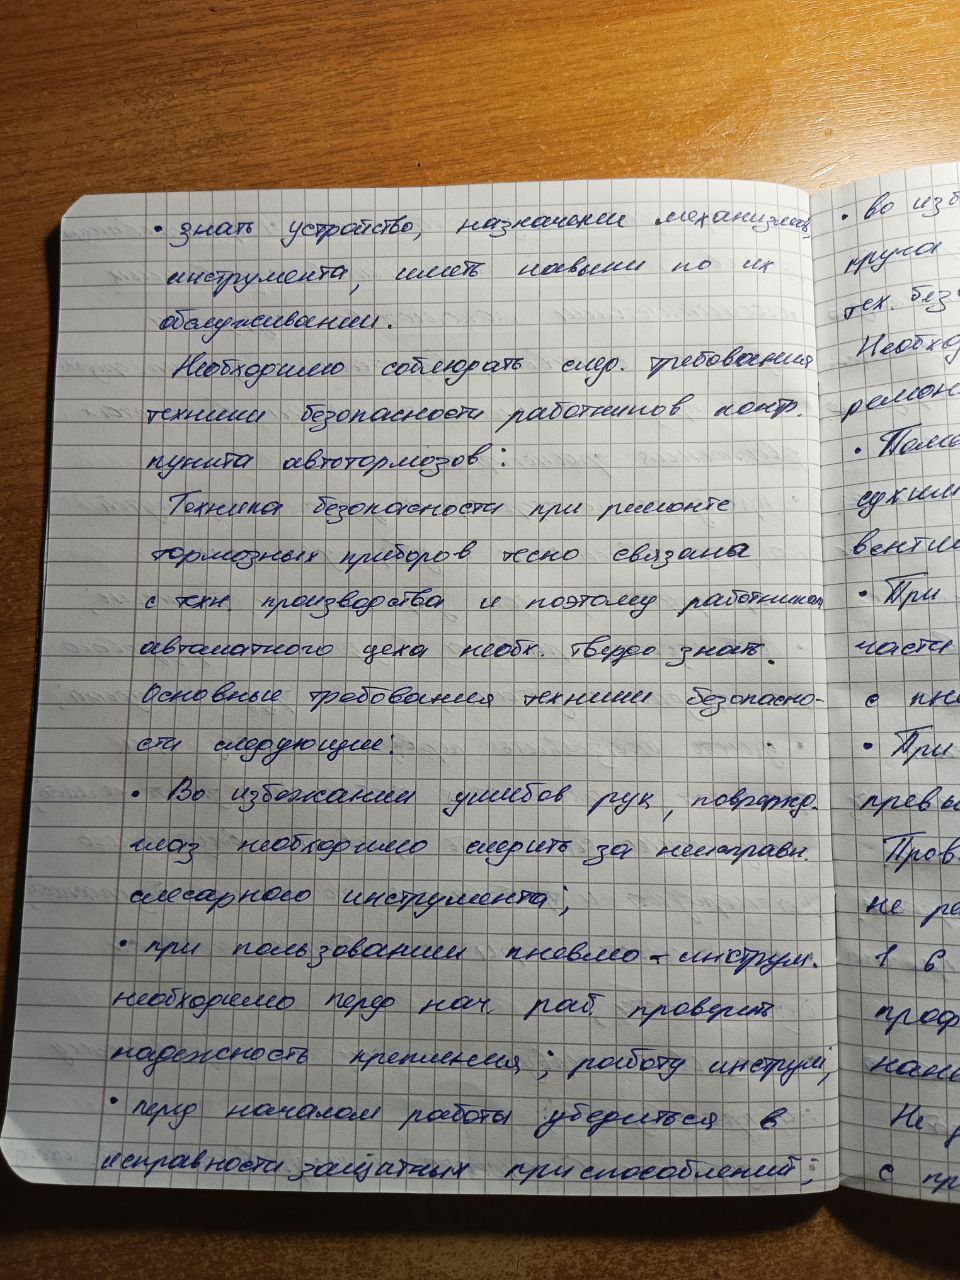 • знать устройство, назначении механизмов,
инструмента, иметь навыки по их
обслуживании.
Необходимо соблюдать след. требования
техники безопасности работников контр.
пункта автотормозов:
Техника безопасности при ремонте
тормозных приборов тесно связаны
с техн. производства и поэтому работникам
автоматного цеха необх. твердо знать.
Основные требования техники безопасно-
сти следующие:
• Во избежании ушибов рук, поврежд.
глаз необходимо следить за неисправн.
слесарного инструмента;
• при пользовании пневмо-инструм.
необходимо перед нач. раб. проверить
надежность крепления; работу инструм;
• перед началом работы убедиться в
исправности защитных приспособлений;
• во изб
круга
тех. без
Необход
ремон
•
сухим
венти
• При
части
с пне
• При
превы
Пров
не ре
1 6
проф
нане
Не
с пр